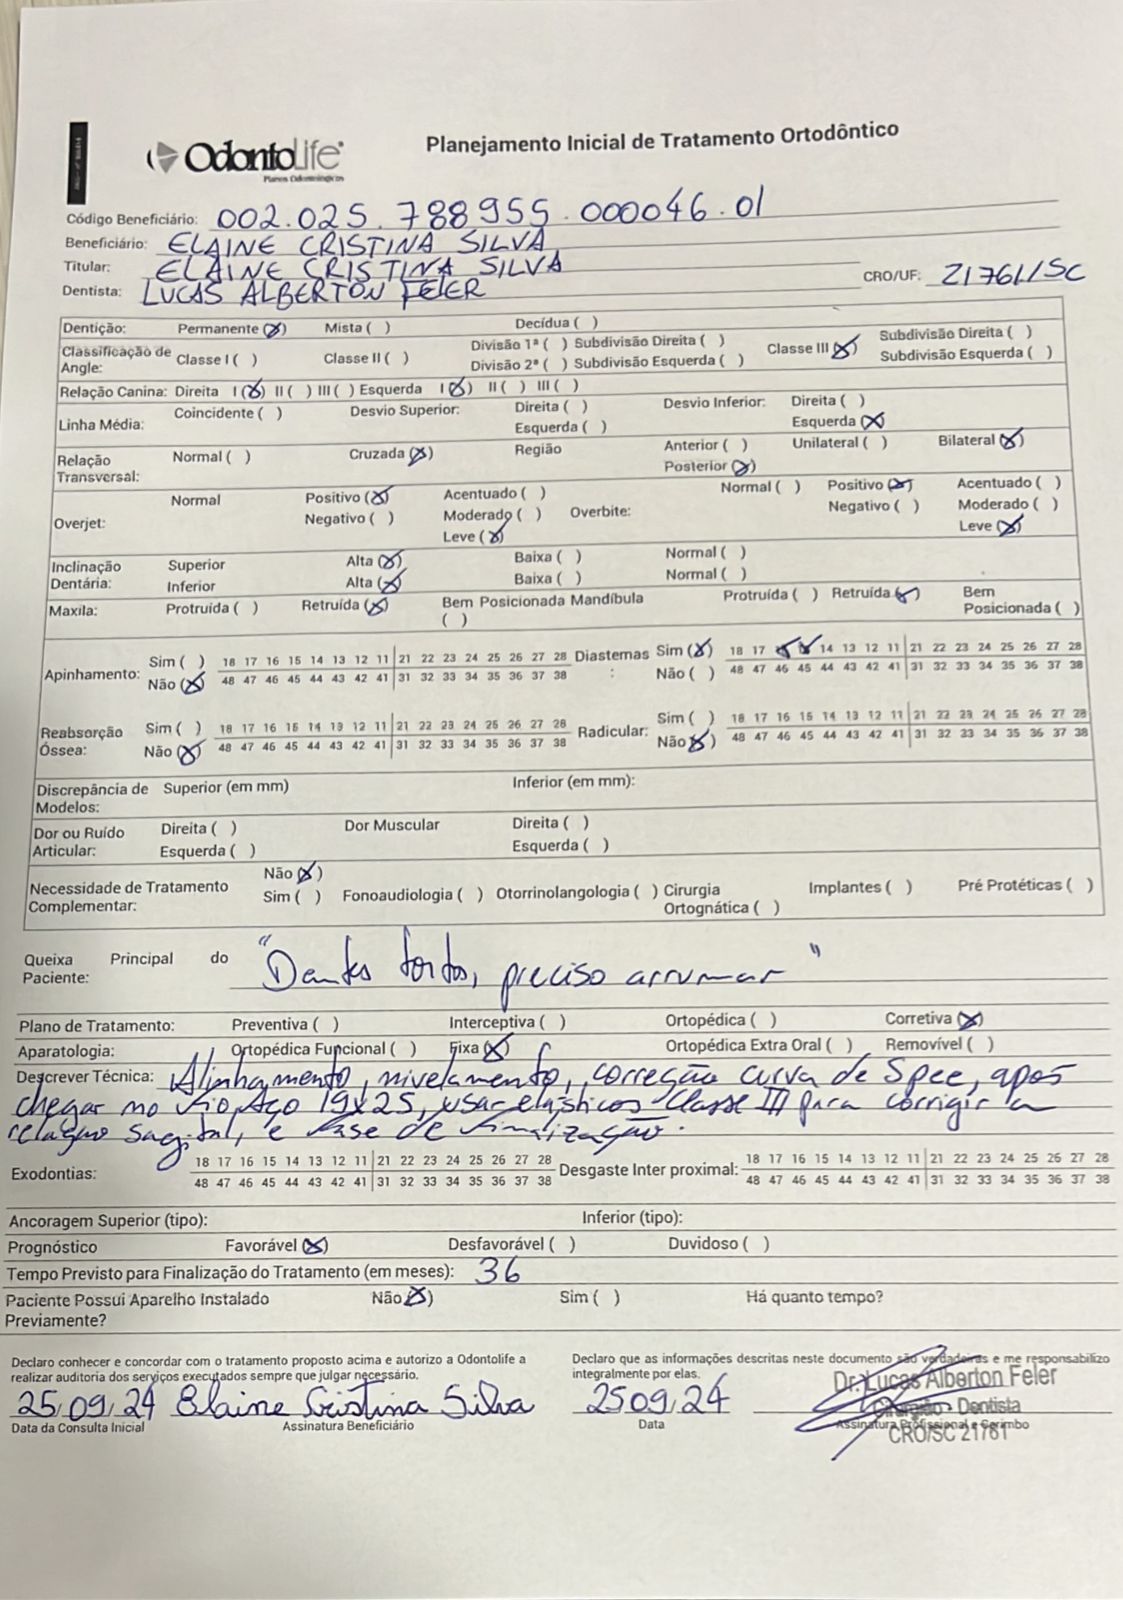 OdontoLife
Planos Odontológicos
Planejamento Inicial de Tratamento Ortodôntico
Código Beneficiário: 002.025.788955.000046.01
Beneficiário: ELAINE CRISTINA SILVA
Titular: ELAINE CRISTINA SILVA
Dentista: LUCAS ALBERTON FELER CRO/UF: 21761/SC
Dentição: Permanente (X) Mista ( ) Decídua ( )
Classificação de Angle: Classe I ( ) Classe II ( ) Divisão 1ª ( ) Subdivisão Direita ( ) Classe III (X) Subdivisão Direita ( )
Divisão 2ª ( ) Subdivisão Esquerda ( ) Subdivisão Esquerda ( )
Relação Canina: Direita I (X) II ( ) III ( ) Esquerda I (X) II ( ) III ( )
Linha Média: Coincidente ( ) Desvio Superior: Direita ( ) Desvio Inferior: Direita ( )
Esquerda ( ) Esquerda (X)
Relação Transversal: Normal ( ) Cruzada (X) Região Anterior ( ) Unilateral ( ) Bilateral (X)
Posterior (X)
Overjet: Normal Positivo (X) Acentuado ( ) Overbite: Normal ( ) Positivo (X) Acentuado ( )
Negativo ( ) Moderado ( ) Negativo ( ) Moderado ( )
Leve (X) Leve (X)
Inclinação Dentária: Superior Alta (X) Baixa ( ) Normal ( )
Inferior Alta (X) Baixa ( ) Normal ( )
Maxila: Protruída ( ) Retruída (X) Bem Posicionada ( ) Mandíbula Protruída ( ) Retruída (X) Bem Posicionada ( )
Apinhamento: Sim ( ) 18 17 16 15 14 13 12 11 21 22 23 24 25 26 27 28 Diastemas: Sim (X) 18 17 14 13 12 11 21 22 23 24 25 26 27 28
Não (X) 48 47 46 45 44 43 42 41 31 32 33 34 35 36 37 38 Não ( ) 48 47 46 45 44 43 42 41 31 32 33 34 35 36 37 38
Reabsorção Óssea: Sim ( ) 18 17 16 15 14 13 12 11 21 22 23 24 25 26 27 28 Radicular: Sim ( ) 18 17 16 15 14 13 12 11 21 22 23 24 25 26 27 28
Não (X) 48 47 46 45 44 43 42 41 31 32 33 34 35 36 37 38 Não (X) 48 47 46 45 44 43 42 41 31 32 33 34 35 36 37 38
Discrepância de Modelos: Superior (em mm) Inferior (em mm):
Dor ou Ruído Articular: Direita ( ) Dor Muscular Direita ( )
Esquerda ( ) Esquerda ( )
Necessidade de Tratamento Complementar: Não (X)
Sim ( ) Fonoaudiologia ( ) Otorrinolangologia ( ) Cirurgia Ortognática ( ) Implantes ( ) Pré Protéticas ( )
Queixa Principal do Paciente: "Dentes tortos, preciso arrumar"
Plano de Tratamento: Preventiva ( ) Interceptiva ( ) Ortopédica ( ) Corretiva (X)
Aparatologia: Ortopédica Funcional ( ) Fixa (X) Ortopédica Extra Oral ( ) Removível ( )
Descrever Técnica: Alinhamento, nivelamento, correção curva de Spee, apos
chegar no fio Aço 19x25, usar elásticos Classe III para corrigir a
relação sagital, e fase de finalização.
Exodontias: 18 17 16 15 14 13 12 11 21 22 23 24 25 26 27 28 Desgaste Inter proximal: 18 17 16 15 14 13 12 11 21 22 23 24 25 26 27 28
48 47 46 45 44 43 42 41 31 32 33 34 35 36 37 38 48 47 46 45 44 43 42 41 31 32 33 34 35 36 37 38
Ancoragem Superior (tipo): Inferior (tipo):
Prognóstico Favorável (X) Desfavorável ( ) Duvidoso ( )
Tempo Previsto para Finalização do Tratamento (em meses): 36
Paciente Possui Aparelho Instalado Previamente? Não (X) Sim ( ) Há quanto tempo?
Declaro conhecer e concordar com o tratamento proposto acima e autorizo a Odontolife a
realizar auditoria dos serviços executados sempre que julgar necessário.
Declaro que as informações descritas neste documento são verdadeiras e me responsabilizo
integralmente por elas.
25/09/24 Elaine Cristina Silva 25 09/24
Dr. Lucas Alberton Feler
Cirurgião - Dentista
CRO/SC 21761
Data da Consulta Inicial Assinatura Beneficiário Data Assinatura Profissional e Carimbo